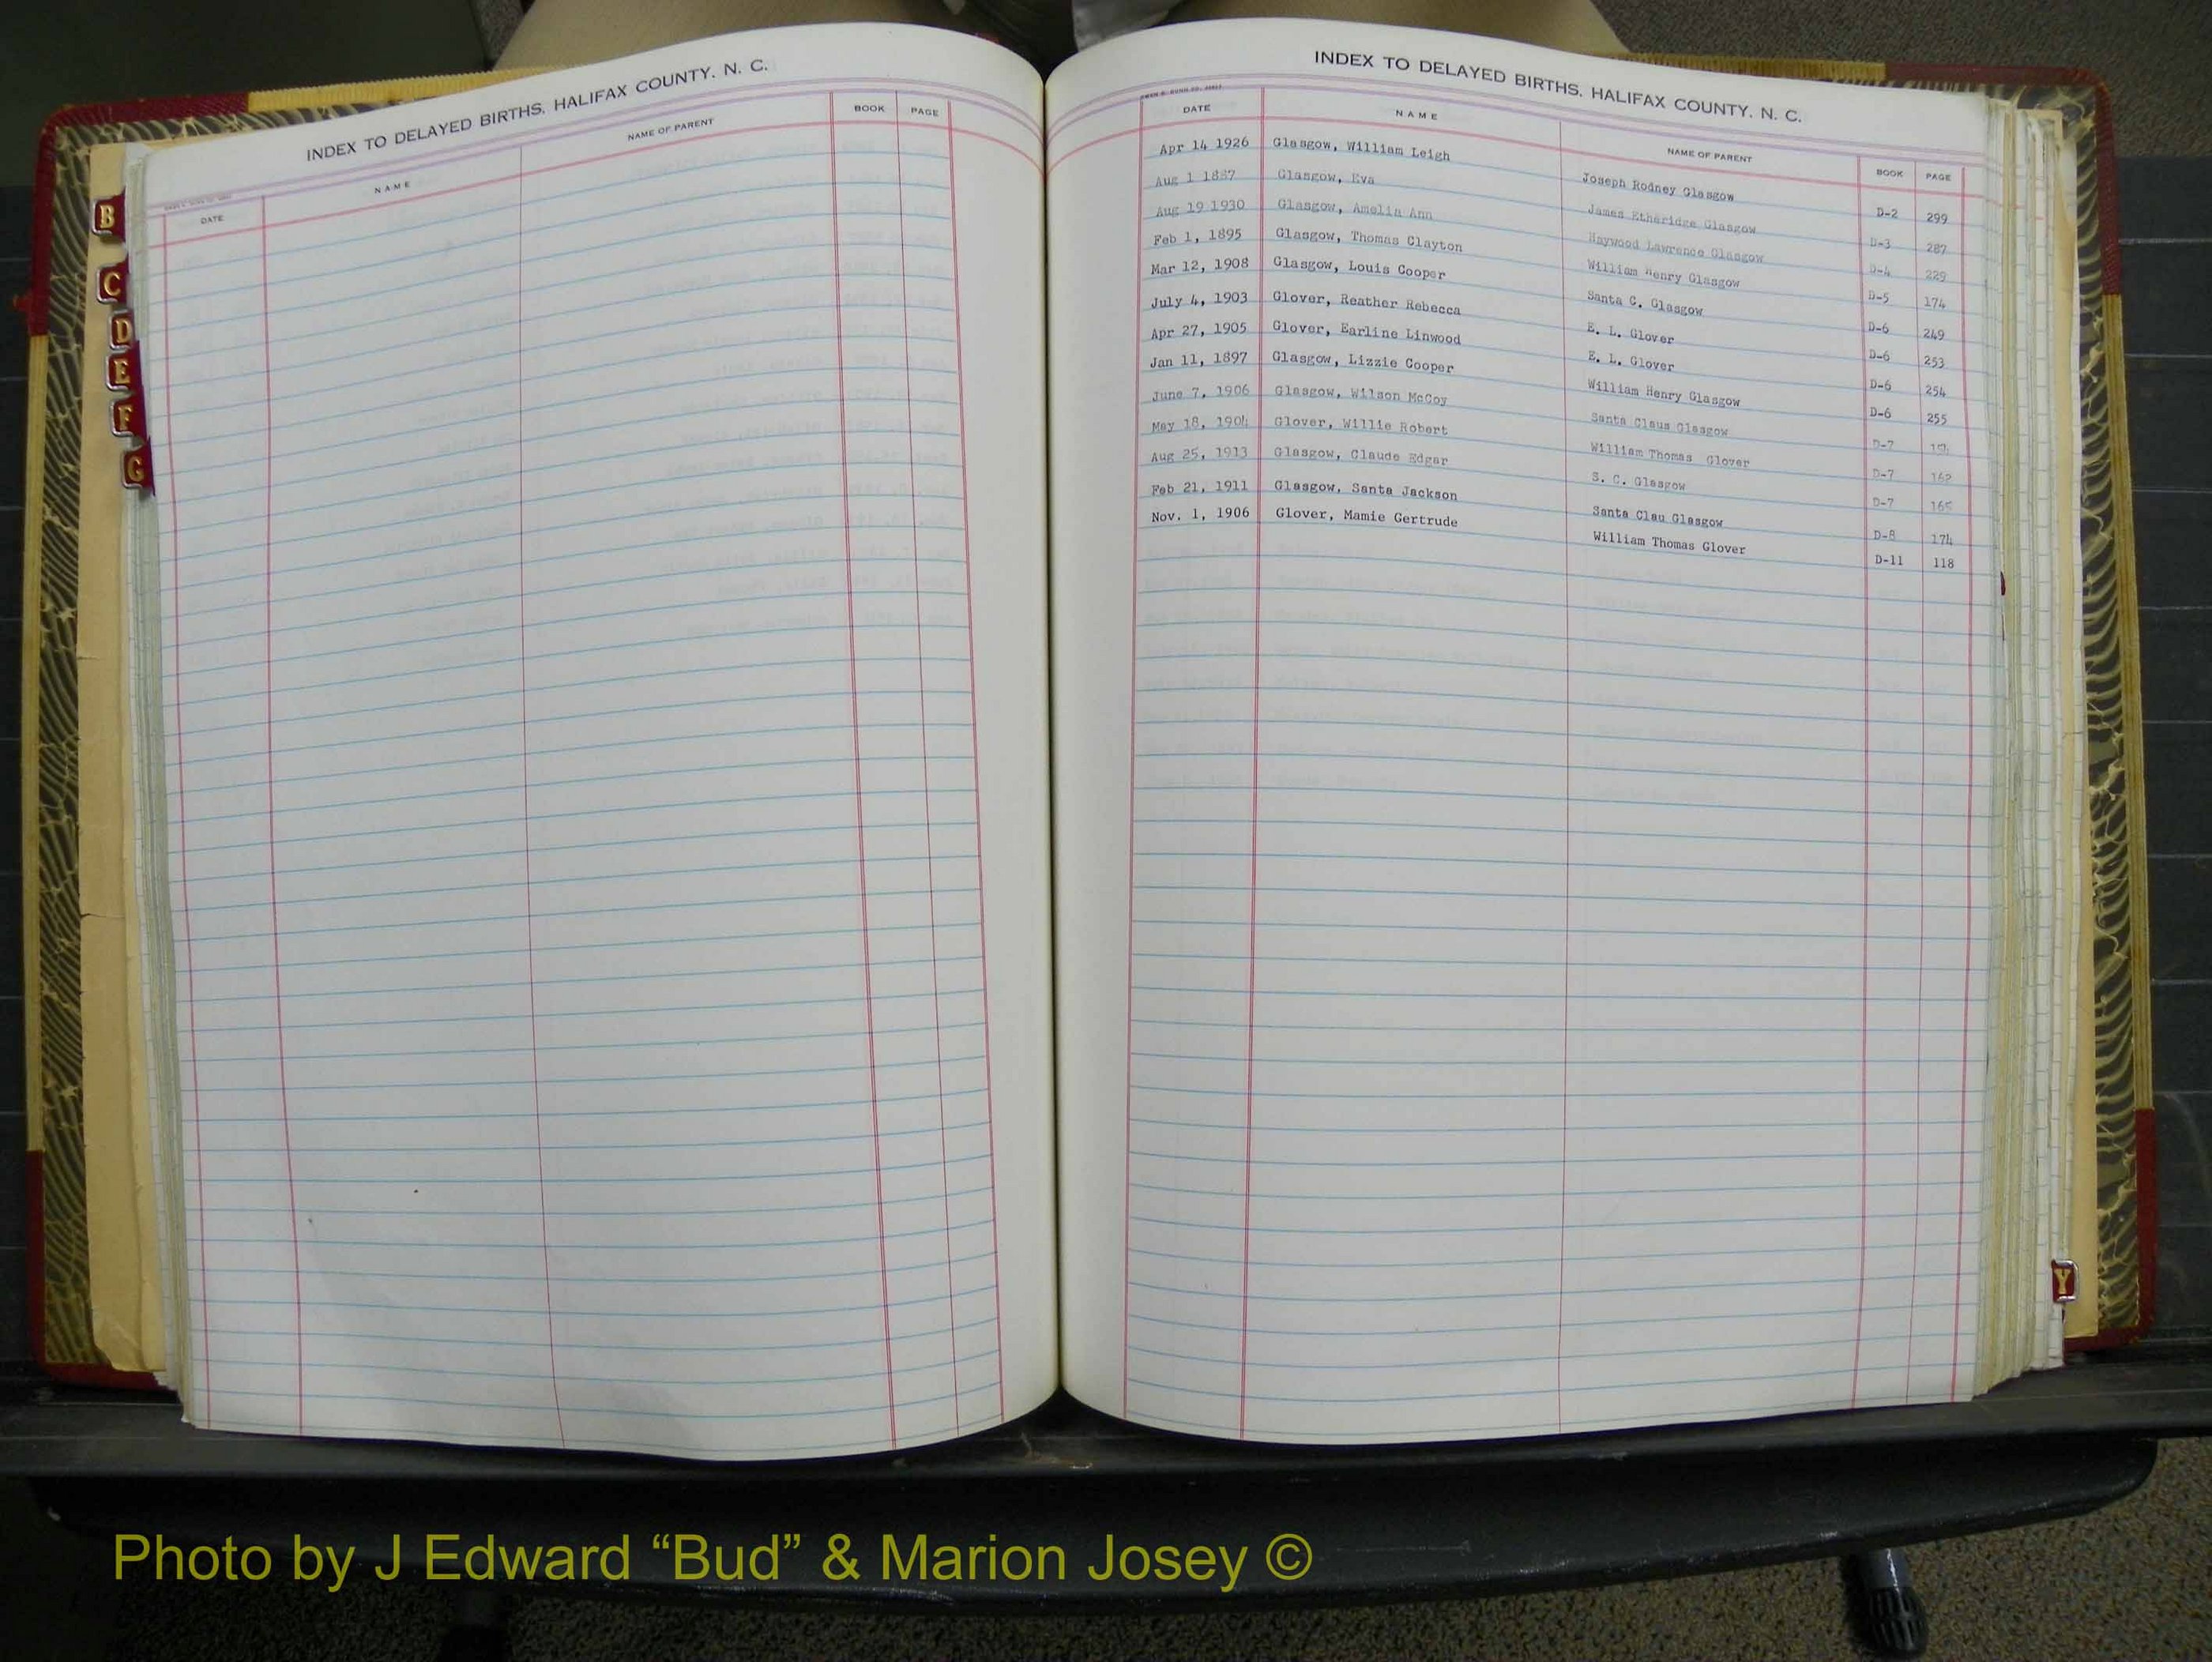 INDEX TO DELAYED BIRTHS, HALIFAX COUNTY, N. C.
DATE NAME NAME OF PARENT BOOK PAGE
B
C
D
E
F
G
INDEX TO DELAYED BIRTHS, HALIFAX COUNTY, N. C.
DATE NAME NAME OF PARENT BOOK PAGE
Apr 14 1926 Glasgow, William Leigh Joseph Rodney Glasgow D-2 299
Aug 1 1887 Glasgow, Eva James Etheridge Glasgow D-3 287
Aug 19 1930 Glasgow, Amelia Ann Haywood Lawrence Glasgow D-4 229
Feb 1, 1895 Glasgow, Thomas Clayton William Henry Glasgow D-5 174
Mar 12, 1908 Glasgow, Louis Cooper Santa C. Glasgow D-6 249
July 4, 1903 Glover, Reather Rebecca E. L. Glover D-6 253
Apr 27, 1905 Glover, Earline Linwood E. L. Glover D-6 254
Jan 11, 1897 Glasgow, Lizzie Cooper William Henry Glasgow D-6 255
June 7, 1906 Glasgow, Wilson McCoy Santa Claus Glasgow D-7
May 18, 1904 Glover, Willie Robert William Thomas Glover D-7 162
Aug 25, 1913 Glasgow, Claude Edgar S. C. Glasgow D-7 165
Feb 21, 1911 Glasgow, Santa Jackson Santa Clau Glasgow D-8 174
Nov. 1, 1906 Glover, Mamie Gertrude William Thomas Glover D-11 118
Y
Photo by J Edward “Bud” & Marion Josey ©